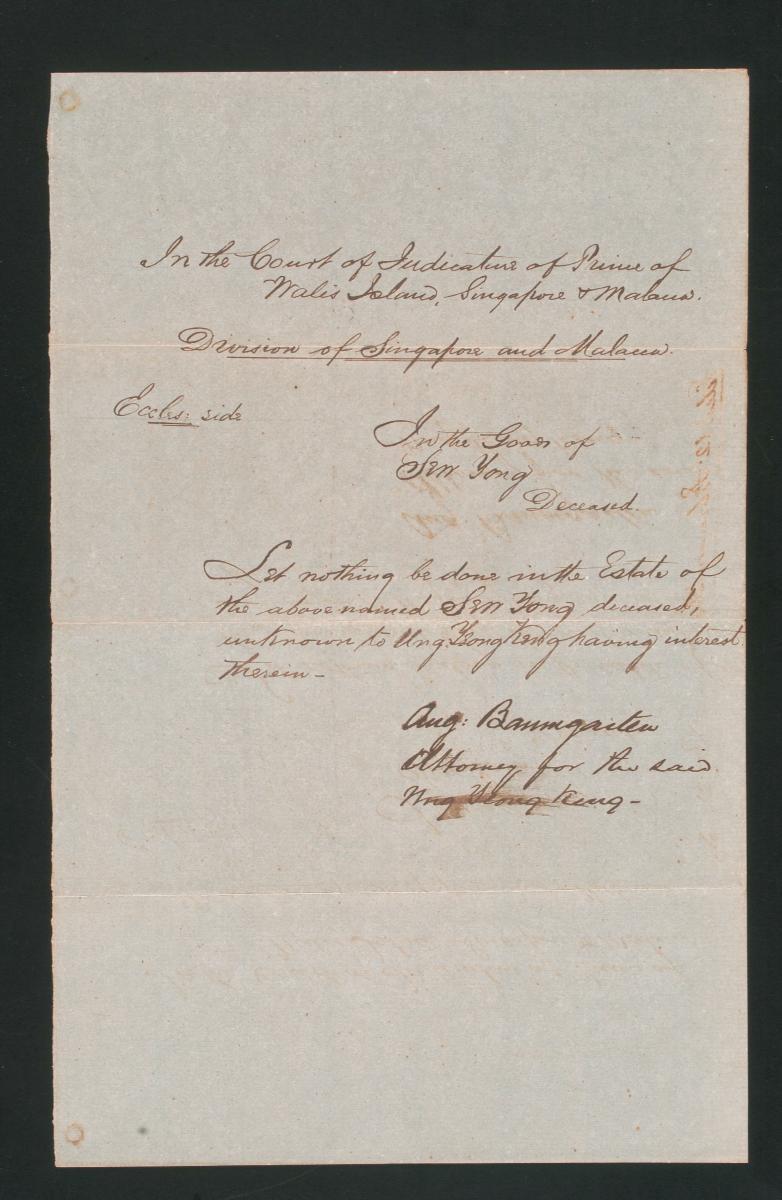 In the Court of Judicature of Prince of
Wales Island, Singapore & Malacca.
Division of Singapore and Malacca.
Eccles: side
In the Goods of
Sew Yong
Deceased.
Let nothing be done in the Estate of
the above named Sew Yong deceased,
unknown to Ung Yeong Keng having interest
therein –
Aug: Baumgarten
Attorney for the said
Ung Yeong Keng –